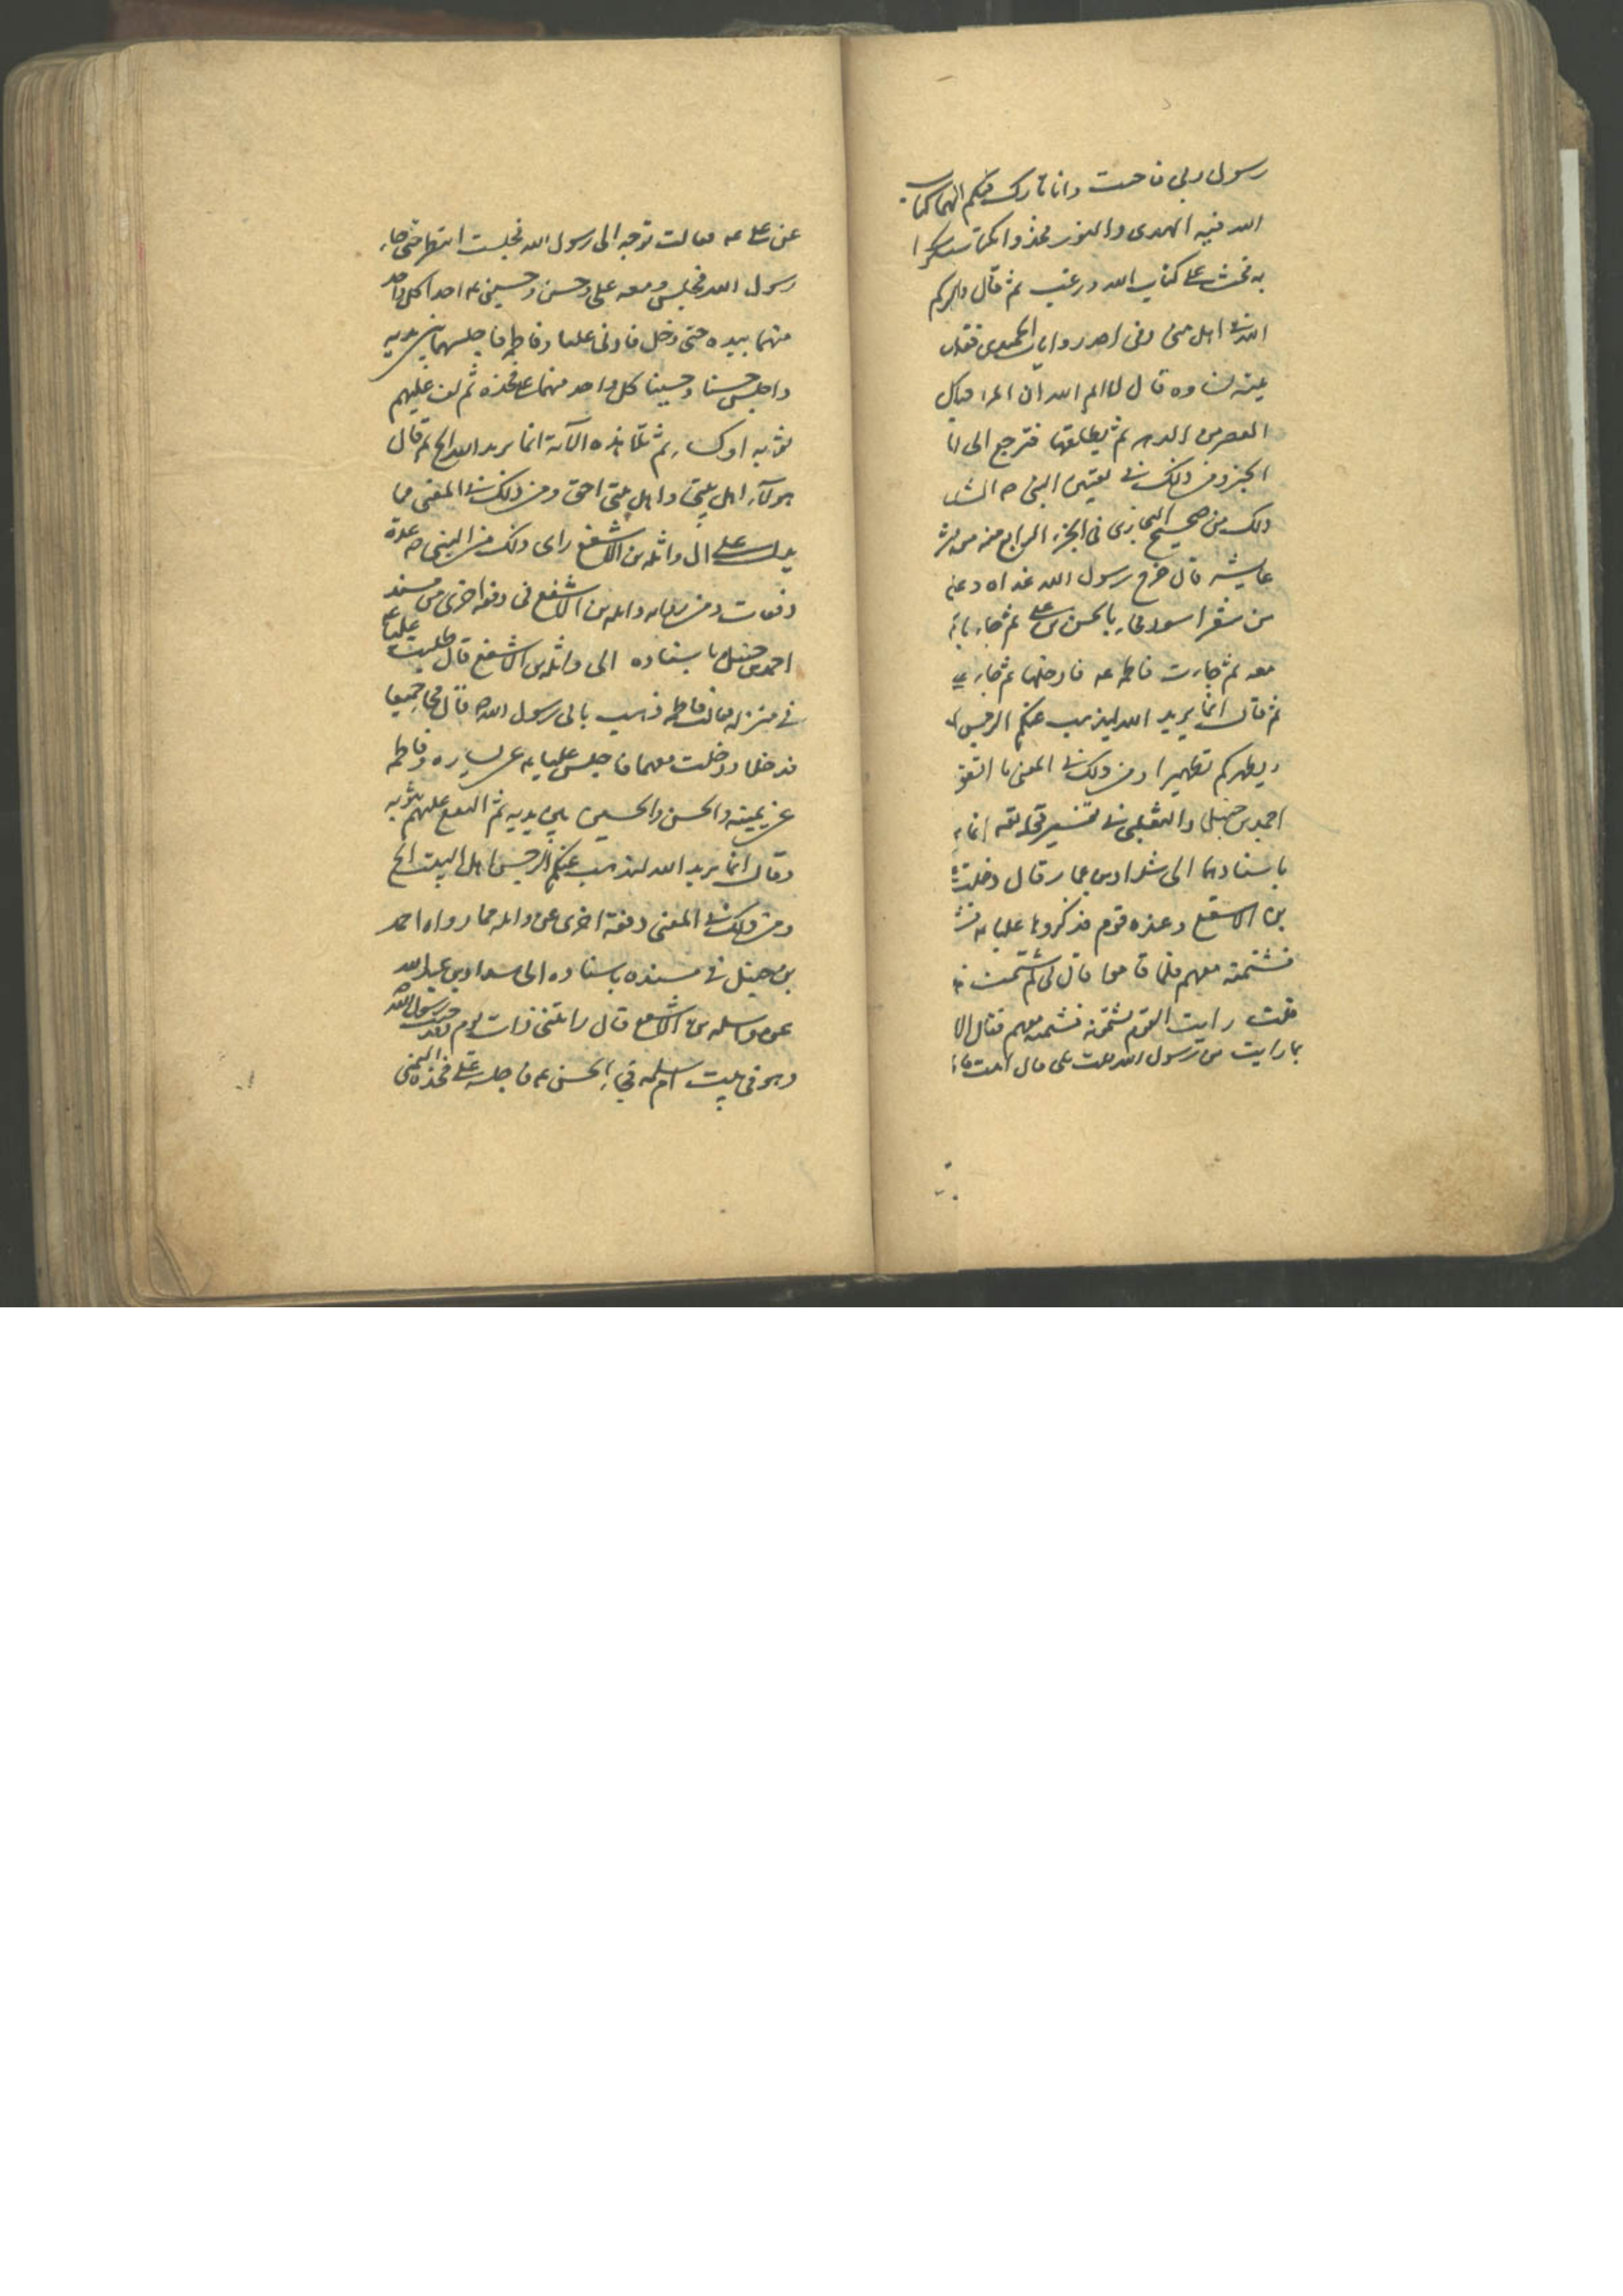 رسول ربي فاجيب وانا تارك فيكم الثقلين كتاب
الله فيه الهدى والنور فخذوا بكتاب الله واستمسكوا
به فحث على كتاب الله ورغب ثم قال واذكركم
الله في اهل بيتي وفي احد روايات الحميدي فقلنا
نساؤه قال لا ايم الله ان المراة
العصر من الدهر ثم يطلقها فترجع الى
الخبر ومن ذلك في تعيين النبي ص
ذلك من صحيح البخاري في الجزء الرابع منه من
عايشه قال خرج رسول الله غداه وعليه
من شعر اسود فجاء بالحسن بن علي ثم جاء
معه ثم جاءت فاطمه عه فادخلها ثم جاء
ثم قال انما يريد الله ليذهب عنكم الرجس
ويطهركم تطهيرا ومن ذلك في المعنى ما اتفق
احمد بن حنبل والثعلبي في تفسير قوله تعه انما
باسنادهما الى شداد بن عمار قال دخلت
بن الاسقع وعنده قوم فذكروا عليا عه
فشتمته معهم فلما قاموا قال لي لم شتمت
قلت رايت القوم يشتمونه فشتمته معهم فقال الا
بما رايت من رسول الله قلت بلى قال اتيت
عن علي عه فقالت توجه الى رسول الله فجلست انتظره حتى جاء
رسول الله فجلس ومعه علي وحسن وحسين عه اخذا كل واحد
منهما بيده حتى دخل فادنى عليا وفاطمه فاجلسهما بين يديه
واجلس حسنا وحسينا كل واحد منهما على فخذه ثم لف عليهم
ثوبه او كساء ثم تلا هذه الآية انما يريد الله الخ ثم قال
هولآء اهل بيتي واهل بيتي احق ومن ذلك في المعنى مما
يدل على ان واثله بن الاسقع راى ذلك من النبي ص عدة
دفعات ومن رواية واثله بن الاسقع في دفعه اخرى من مسند
احمد بن حنبل باسناده الى واثله بن الاسقع قال طلبت عليا عه
في منزله فقالت فاطمه ذهب ياتي رسول الله ص قال فجاءا جميعا
فدخلا ودخلت معهما فاجلس عليا عه عن يساره وفاطمه
عن يمينه والحسن والحسين بين يديه ثم التفع عليهم بثوبه
وقال انما يريد الله ليذهب عنكم الرجس اهل البيت الخ
ومن ذلك في المعنى دفعة اخرى عن واثله مما رواه احمد
بن حنبل في مسنده باسناده الى شداد بن عبد الله
عن واثله بن الاسقع قال رايتني ذات يوم وقد جئت رسول الله ص
وهو في بيت ام سلمه فجاء الحسن عه فاجلسه على فخذه اليمنى